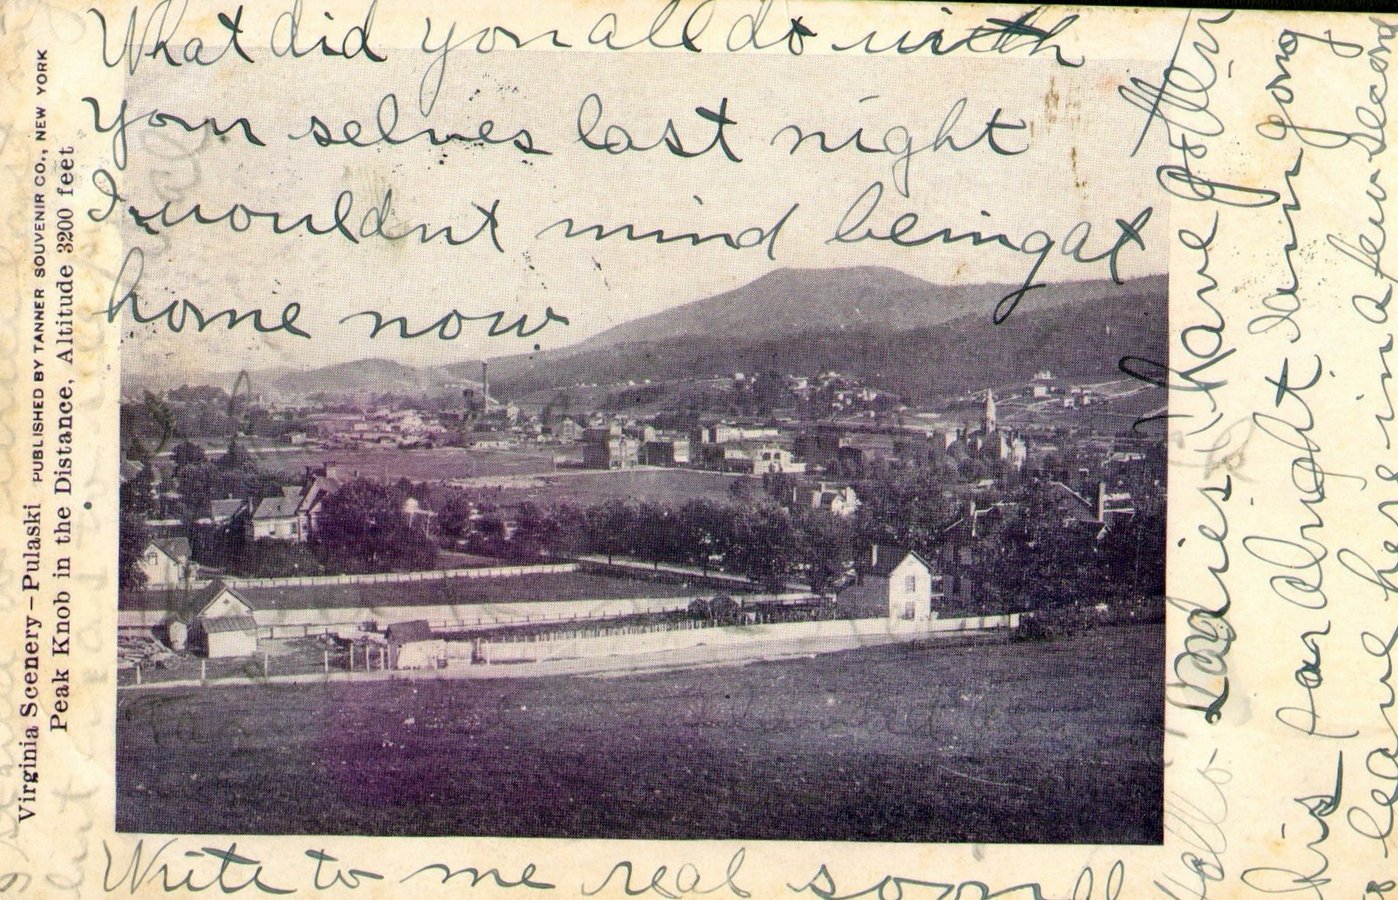 What did you all do with
your selves last night
I wouldnt mind being at
home now.
Write to me real soon
Hello Ladies I have gotten
this far alright I am going
to leave here in a few second
Virginia Scenery – Pulaski PUBLISHED BY TANNER SOUVENIR CO., NEW YORK
Peak Knob in the Distance, Altitude 3200 feet